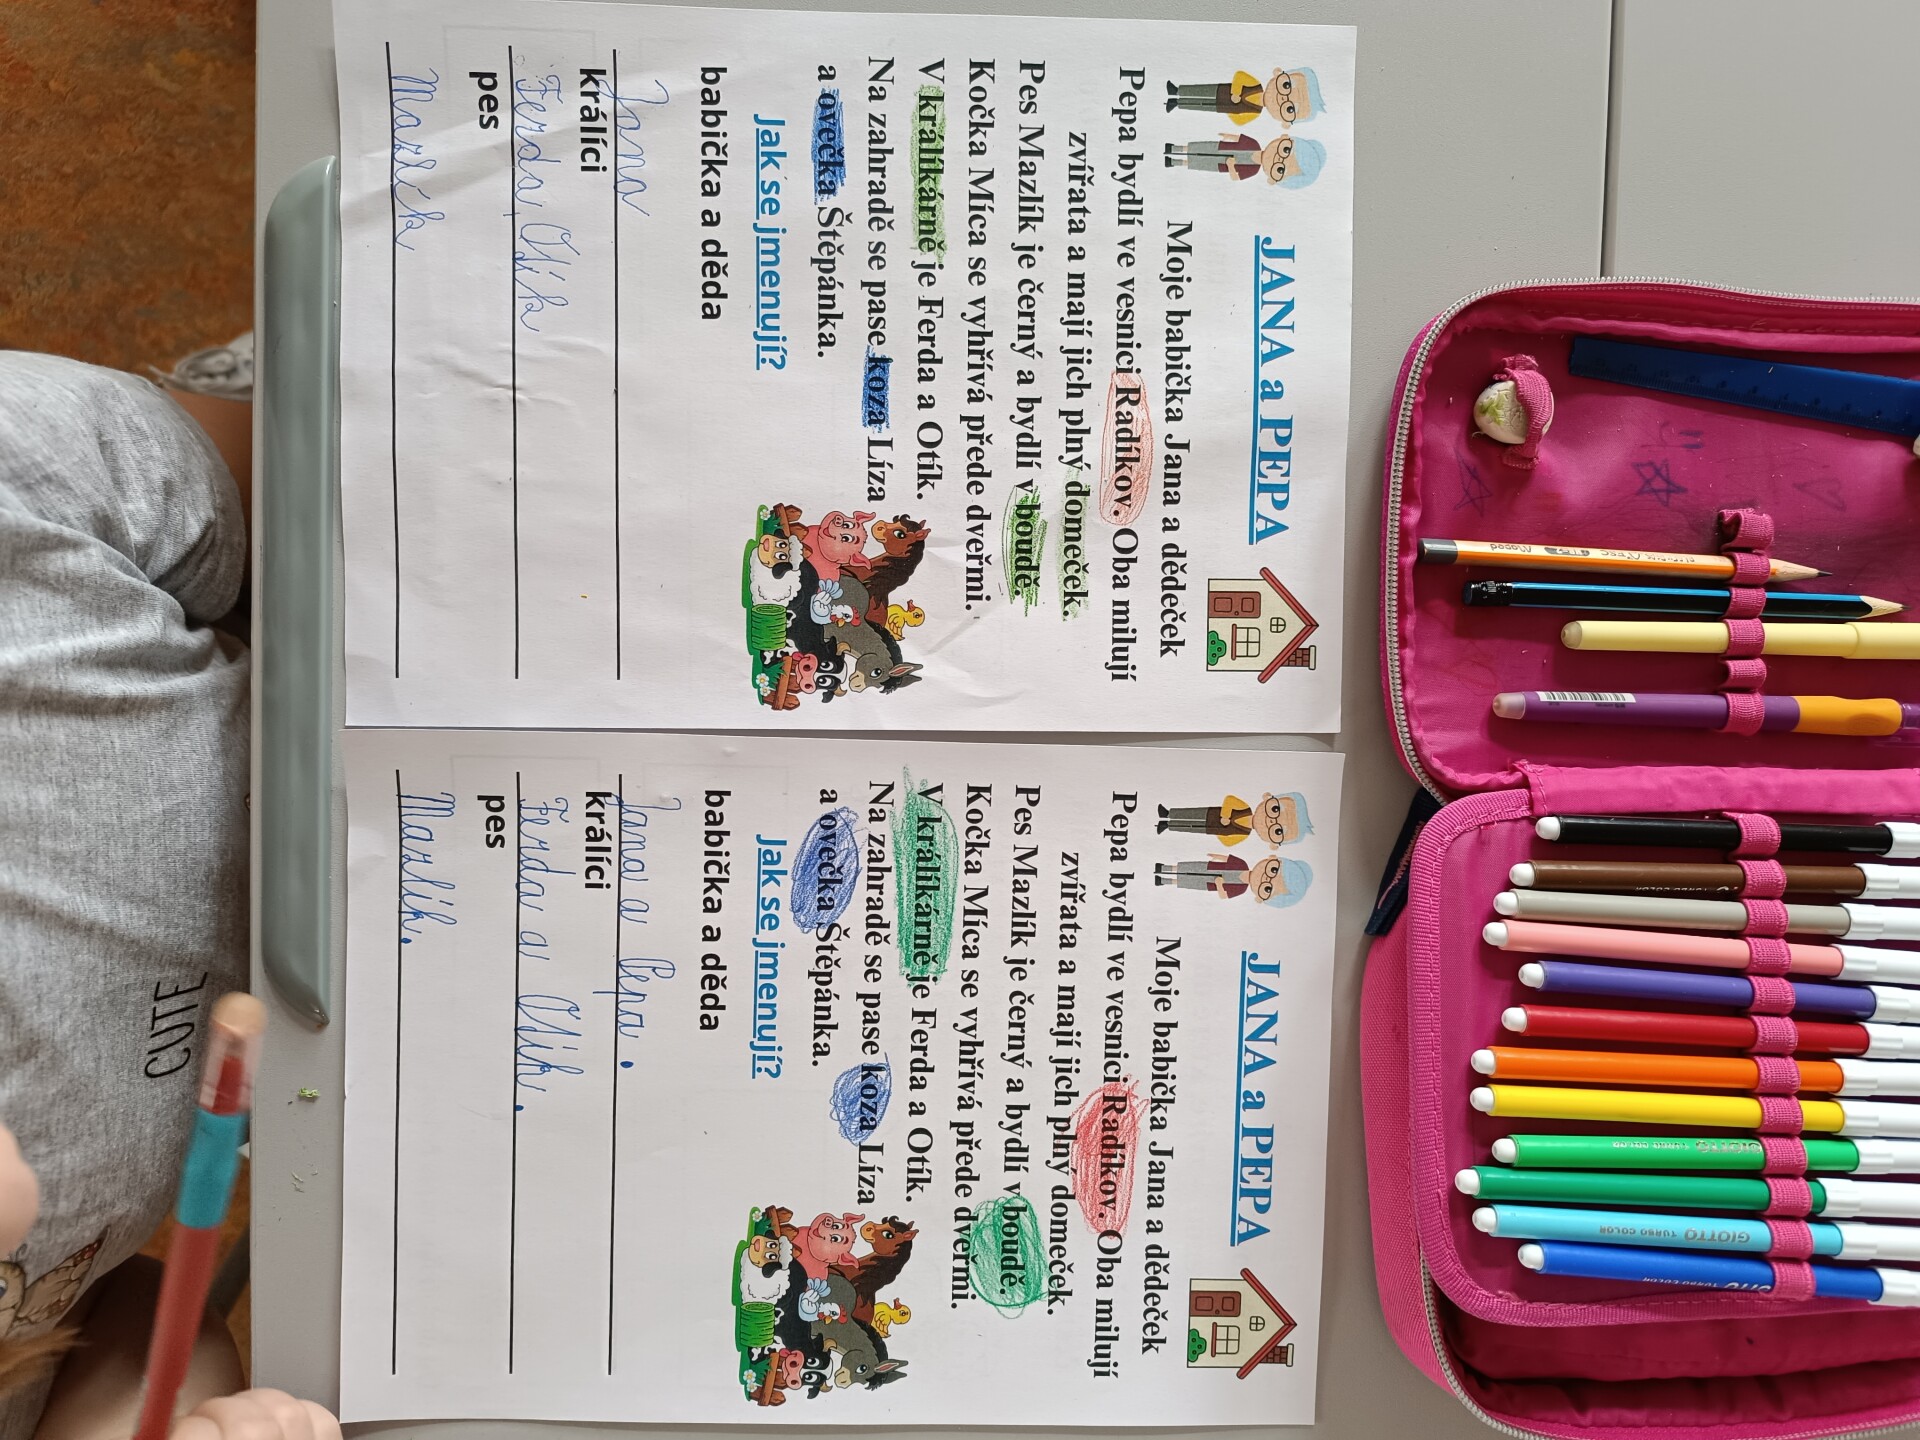 JANA a PEPA
Moje babička Jana a dědeček
Pepa bydlí ve vesnici Radíkov. Oba milují
zvířata a mají jich plný domeček.
Pes Mazlík je černý a bydlí v boudě.
Kočka Míca se vyhřívá přede dveřmi.
V králíkárně je Ferda a Otík.
Na zahradě se pase koza Líza
a ovečka Štěpánka.
Jak se jmenují?
babička a děda
Jana
králíci
Ferda, Otík
pes
Mazlík
JANA a PEPA
Moje babička Jana a dědeček
Pepa bydlí ve vesnici Radíkov. Oba milují
zvířata a mají jich plný domeček.
Pes Mazlík je černý a bydlí v boudě.
Kočka Míca se vyhřívá přede dveřmi.
V králíkárně je Ferda a Otík.
Na zahradě se pase koza Líza
a ovečka Štěpánka.
Jak se jmenují?
babička a děda
Jana a Pepa.
králíci
Ferda a Otík.
pes
Mazlík.
CUTE
GIOTTO
GIOTTO TURBO COLOR
TURBO COLOR